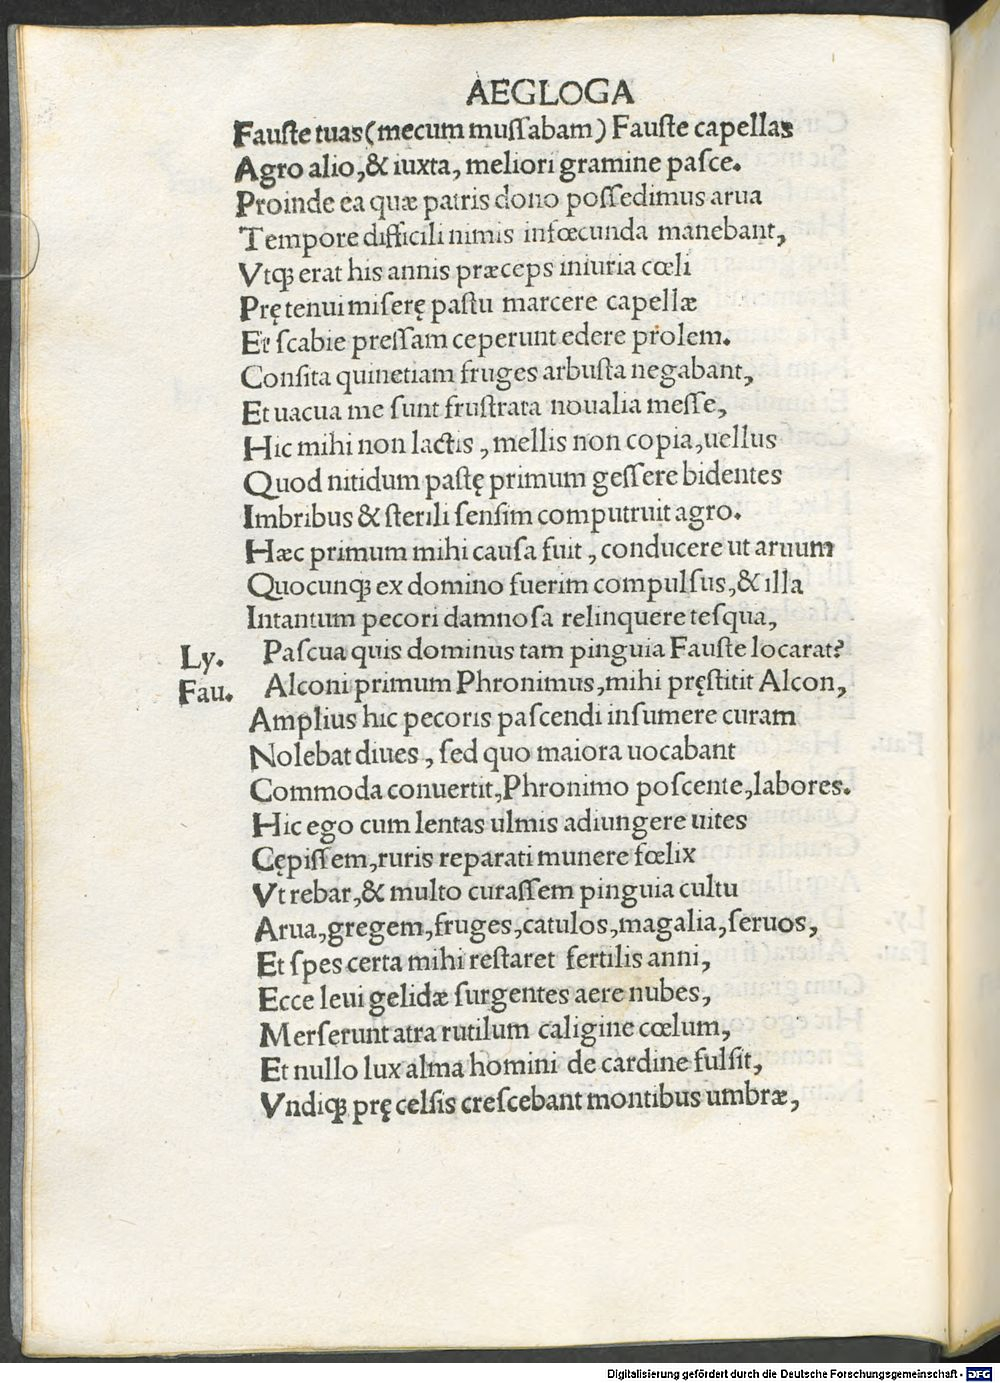 AEGLOGA
Fauste tuas (mecum muſſabam) Fauste capellas
Agro alio, & iuxta, meliori gramine paſce.
Proinde ea quæ patris dono poſſedimus arua
Tempore difficili nimis infœcunda manebant,
Vtqꝫ erat his annis præceps iniuria cœli
Prę tenui miſerę paſtu marcere capellæ
Et ſcabie preſſam ceperunt edere prolem.
Conſita quinetiam fruges arbuſta negabant,
Et uacua me ſunt fruſtrata noualia meſſe,
Hic mihi non lactis, mellis non copia, uellus
Quod nitidum paſtę primum geſſere bidentes
Imbribus & ſterili ſenſim computruit agro.
Hæc primum mihi cauſa fuit, conducere ut aruum
Quocunqꝫ ex domino fuerim compulſus, & illa
Intantum pecori damnoſa relinquere teſqua,
Ly. Paſcua quis dominus tam pinguia Fauſte locarat?
Fau. Alconi primum Phronimus, mihi pręſtitit Alcon,
Amplius hic pecoris paſcendi inſumere curam
Nolebat diues, ſed quo maiora uocabant
Commoda conuertit, Phronimo poſcente, labores.
Hic ego cum lentas ulmis adiungere uites
Cępiſſem, ruris reparati munere fœlix
Vt rebar, & multo curaſſem pinguia cultu
Arua, gregem, fruges, catulos, magalia, ſeruos,
Et ſpes certa mihi reſtaret fertilis anni,
Ecce leui gelidæ ſurgentes aere nubes,
Merſerunt atra rutilum caligine cœlum,
Et nullo lux alma homini de cardine fulſit,
Vndiqꝫ prę celſis creſcebant montibus umbræ,
Digitalisierung gefördert durch die Deutsche Forschungsgemeinschaft - DFG